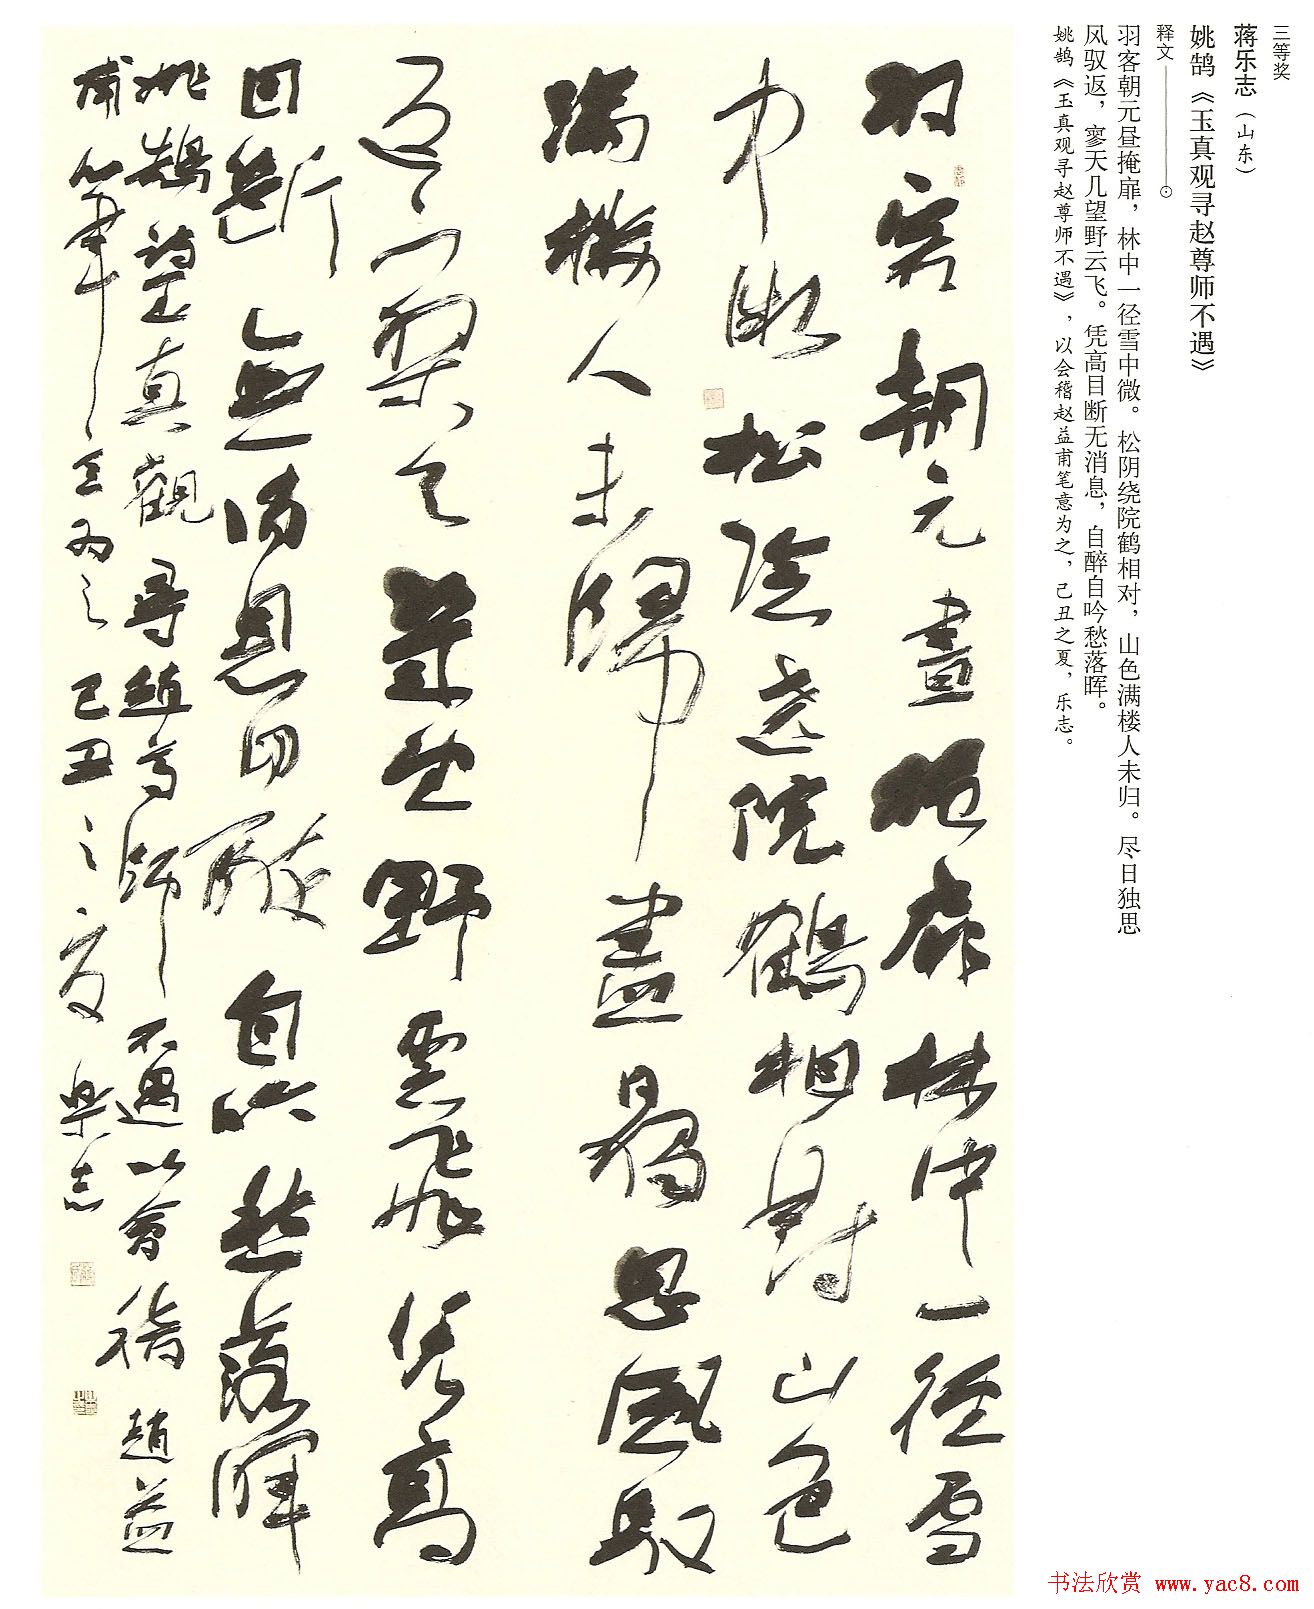 三等奖
蒋乐志（山东）
姚鹄《玉真观寻赵尊师不遇》
释文
羽客朝元昼掩扉，林中一径雪中微。松阴绕院鹤相对，山色满楼人未归。尽日独思
风驭返，寥天几望野云飞。凭高目断无消息，自醉自吟愁落晖。
姚鹄《玉真观寻赵尊师不遇》，以会稽赵益甫笔意为之，己丑之夏，乐志。
羽客朝元晝掩扉林中一徑雪
中微松陰遶院鶴相對山色
滿樓人未歸盡日獨思風馭
返寥天幾望野雲飛憑高
目斷無消息自醉自吟愁落暉
姚鵠詩玉真觀尋趙尊師不遇以會稽趙益
甫筆意為之己丑之夏樂志
书法欣赏 www.yac8.com